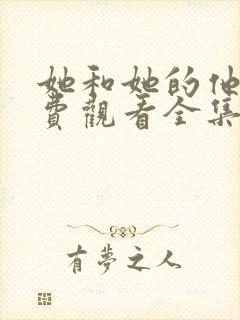 她和她的他
費觀看全集
有夢之人